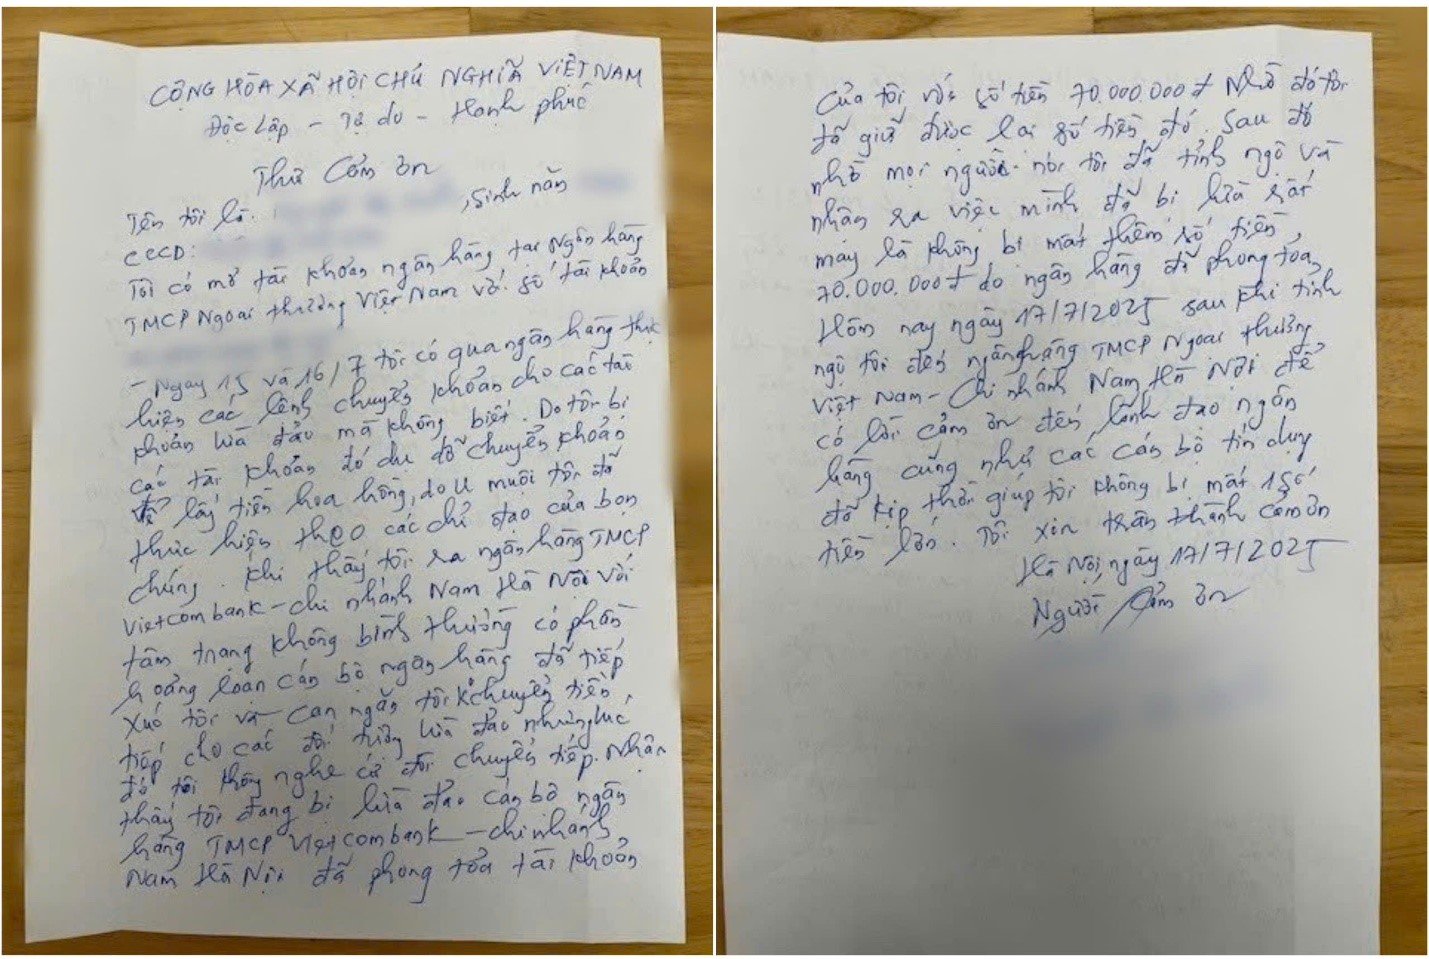 CỘNG HÒA XÃ HỘI CHỦ NGHĨA VIỆT NAM
Độc Lập - Tự do - Hạnh phúc
Thư Cảm ơn
Tên tôi là: , Sinh năm
CCCD:
Tôi có mở tài khoản ngân hàng tại Ngân hàng
TMCP Ngoại thương Việt Nam với số tài khoản
- Ngày 15 và 16/7 tôi có qua ngân hàng thực
hiện các lệnh chuyển khoản cho các tài
khoản lừa đảo mà không biết. Do tôi bị
các tài khoản đó dụ dỗ chuyển khoản
để lấy tiền hoa hồng, do u muội tôi đã
thực hiện theo các chỉ đạo của bọn
chúng. Khi thấy tôi ra ngân hàng TMCP
Vietcombank - chi nhánh Nam Hà Nội với
tâm trạng không bình thường có phần
hoảng loạn cán bộ ngân hàng đã tiếp
xúc tôi và can ngăn tôi K chuyển tiền
tiếp cho các đối tượng lừa đảo nhưng lúc
đó tôi không nghe cứ đòi chuyển tiếp. Nhận
thấy tôi đang bị lừa đảo cán bộ ngân
hàng TMCP Vietcombank - chi nhánh
Nam Hà Nội đã phong tỏa tài khoản
Của tôi với số tiền 70.000.000đ Nhờ đó tôi
đã giữ được lại số tiền đó. Sau đó
nhờ mọi người nói tôi đã tỉnh ngộ và
nhận ra việc mình đã bị lừa rất
may là không bị mất thêm số tiền
70.000.000đ do ngân hàng đã phong tỏa
Hôm nay ngày 17/7/2025 sau khi tỉnh
ngộ tôi đến ngân hàng TMCP Ngoại thương
Việt Nam - Chi nhánh Nam Hà Nội để
có lời cảm ơn đến lãnh đạo ngân
hàng cũng như các cán bộ tín dụng
đã kịp thời giúp tôi không bị mất 1 số
tiền lớn. Tôi xin chân thành cảm ơn
Hà Nội, ngày 17/7/2025
Người Cảm ơn